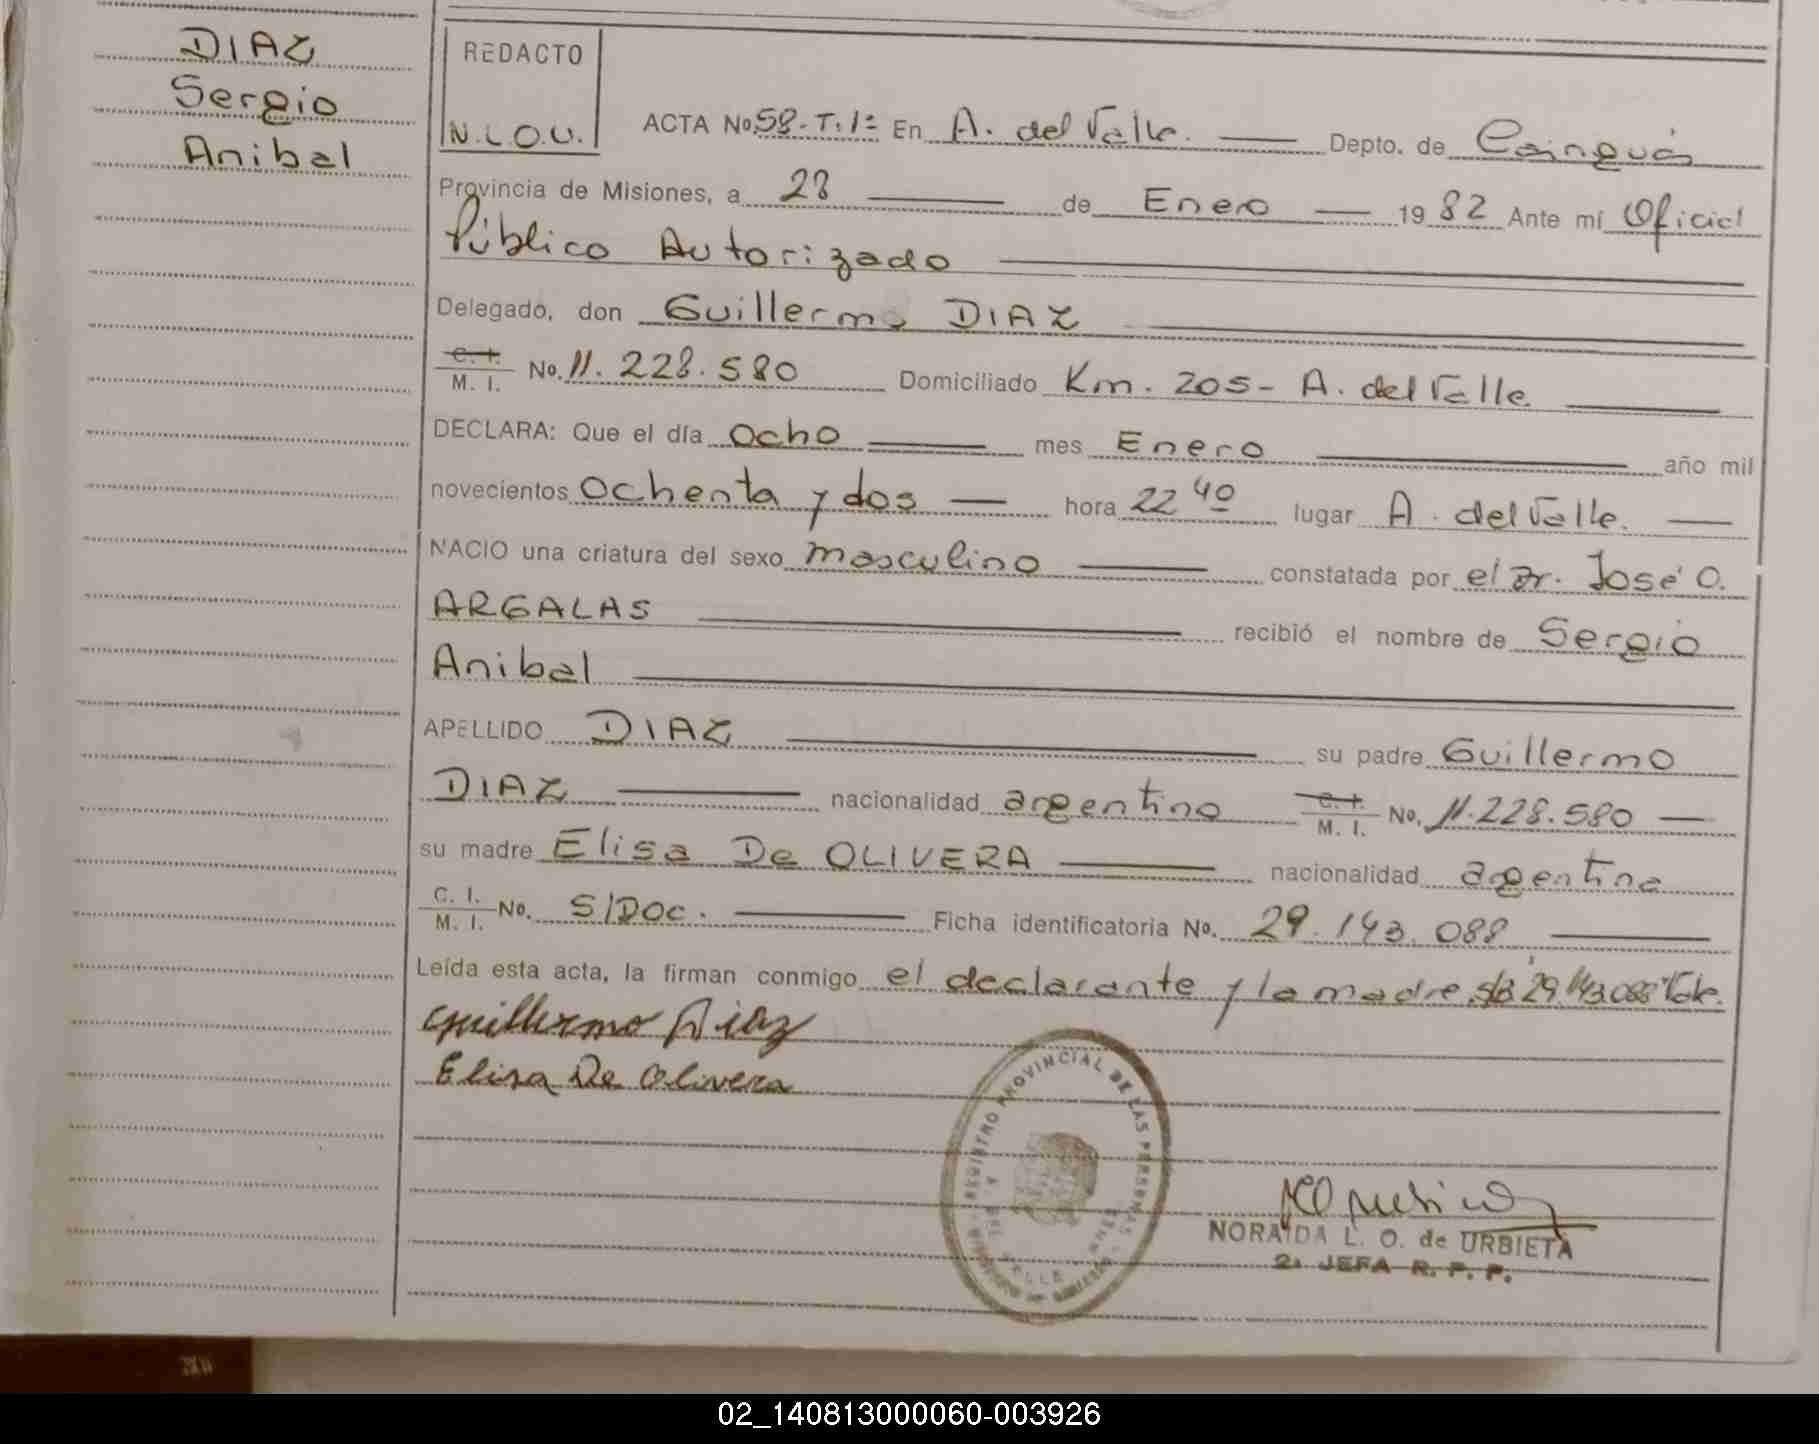 DIAZ
Sergio
Anibal
REDACTO
N.L.O.U.
ACTA No 58-T:1º En A. del Valle. Depto. de Cainguás
Provincia de Misiones, a 28 de Enero 1982 Ante mí Oficial
Público Autorizado
Delegado, don Guillermo DIAZ
C. I.
M. I. No. 11.228.580 Domiciliado Km. 205- A. del Valle
DECLARA: Que el día ocho mes Enero año mil
novecientos ochenta y dos hora 22 40 lugar A. del Valle.
NACIO una criatura del sexo masculino constatada por el Dr. José O.
ARGALAS recibió el nombre de Sergio
Anibal
APELLIDO DIAZ su padre Guillermo
DIAZ nacionalidad argentino C. I. M. I. No. 11.228.580
su madre Elisa De OLIVERA nacionalidad argentina
C. I.
M. I. No. S/DOC. Ficha identificatoria No. 29.143.088
Leída esta acta, la firman conmigo el declarante y la madre. 29.143.088 Vale.
Guillermo Diaz
Elisa De Olivera
REGISTRO PROVINCIAL DE LAS PERSONAS
A. DEL VALLE
NORAIDA L. O. de URBIETA
2ª JEFA R. P. P.
02_140813000060-003926